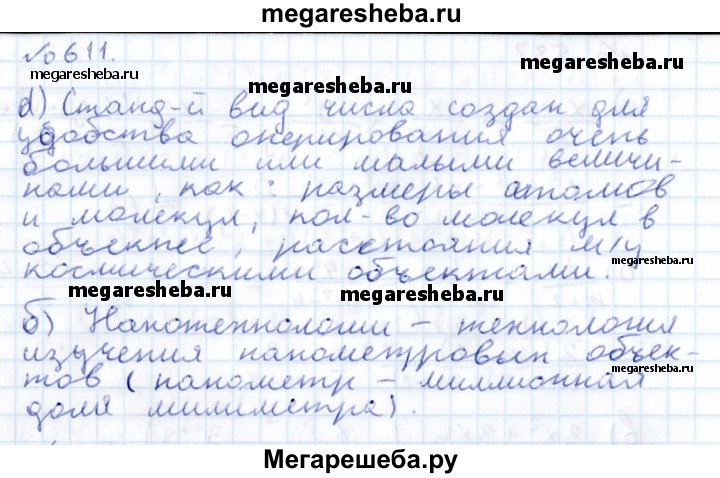 megaresheba.ru
№611.
megaresheba.ru
megaresheba.ru
а) Станд-й вид числа создан для
удобства оперирования очень
большими или малыми величи-
нами, как: размеры атомов
и молекул, кол-во молекул в
объекте, расстояния м/у
megaresheba.ru
космическими объектами.
megaresheba.ru
megaresheba.ru
б) Нанотехнологии – технология
изучения нанометровых объек-
тов (нанометр – миллионная
megaresheba.ru
доля милиметра).
Мегарешеба.ру